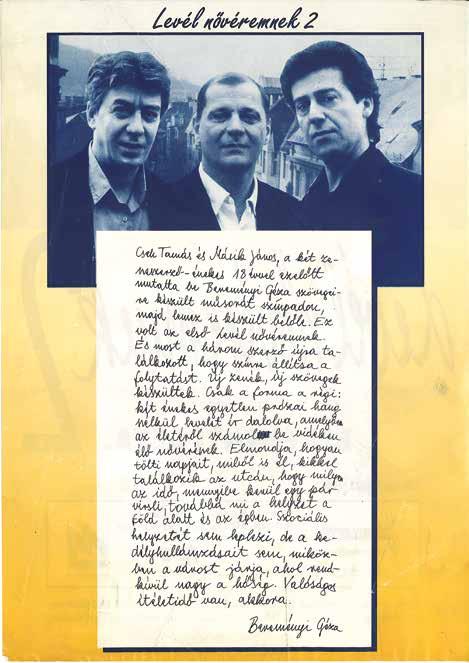 Levél nővéremnek 2
Cseh Tamás és Másik János, a két ze-
neszerző-énekes 18 évvel ezelőtt
mutatta be Bereményi Géza szövegei-
re készült műsorát színpadon,
majd lemez is készült belőle. Ez
volt az első Levél nővéremnek.
És most a három szerző újra ta-
lálkozott, hogy színre állítsa a
folytatást. Új zenék, új szövegek
készültek. Csak a forma a régi:
két énekes egyetlen prózai hang
nélkül levelet ír dalolva, amelyben
az életéről számol be vidéken
élő nővérének. Elmondja, hogyan
tölti napjait, miből is él, kikkel
találkozik az utcán, hogy milyen
az idő, mennyibe kerül egy pár
virsli, továbbá mi a helyzet a
föld alatt és az égben. Szociális
helyzetét sem leplezi, de a ke-
délyhullámzásait sem, miköz-
ben a várost járja, ahol rend-
kívül nagy a hőség. Valóságos
ítéletidő van, akkora.
Bereményi Géza